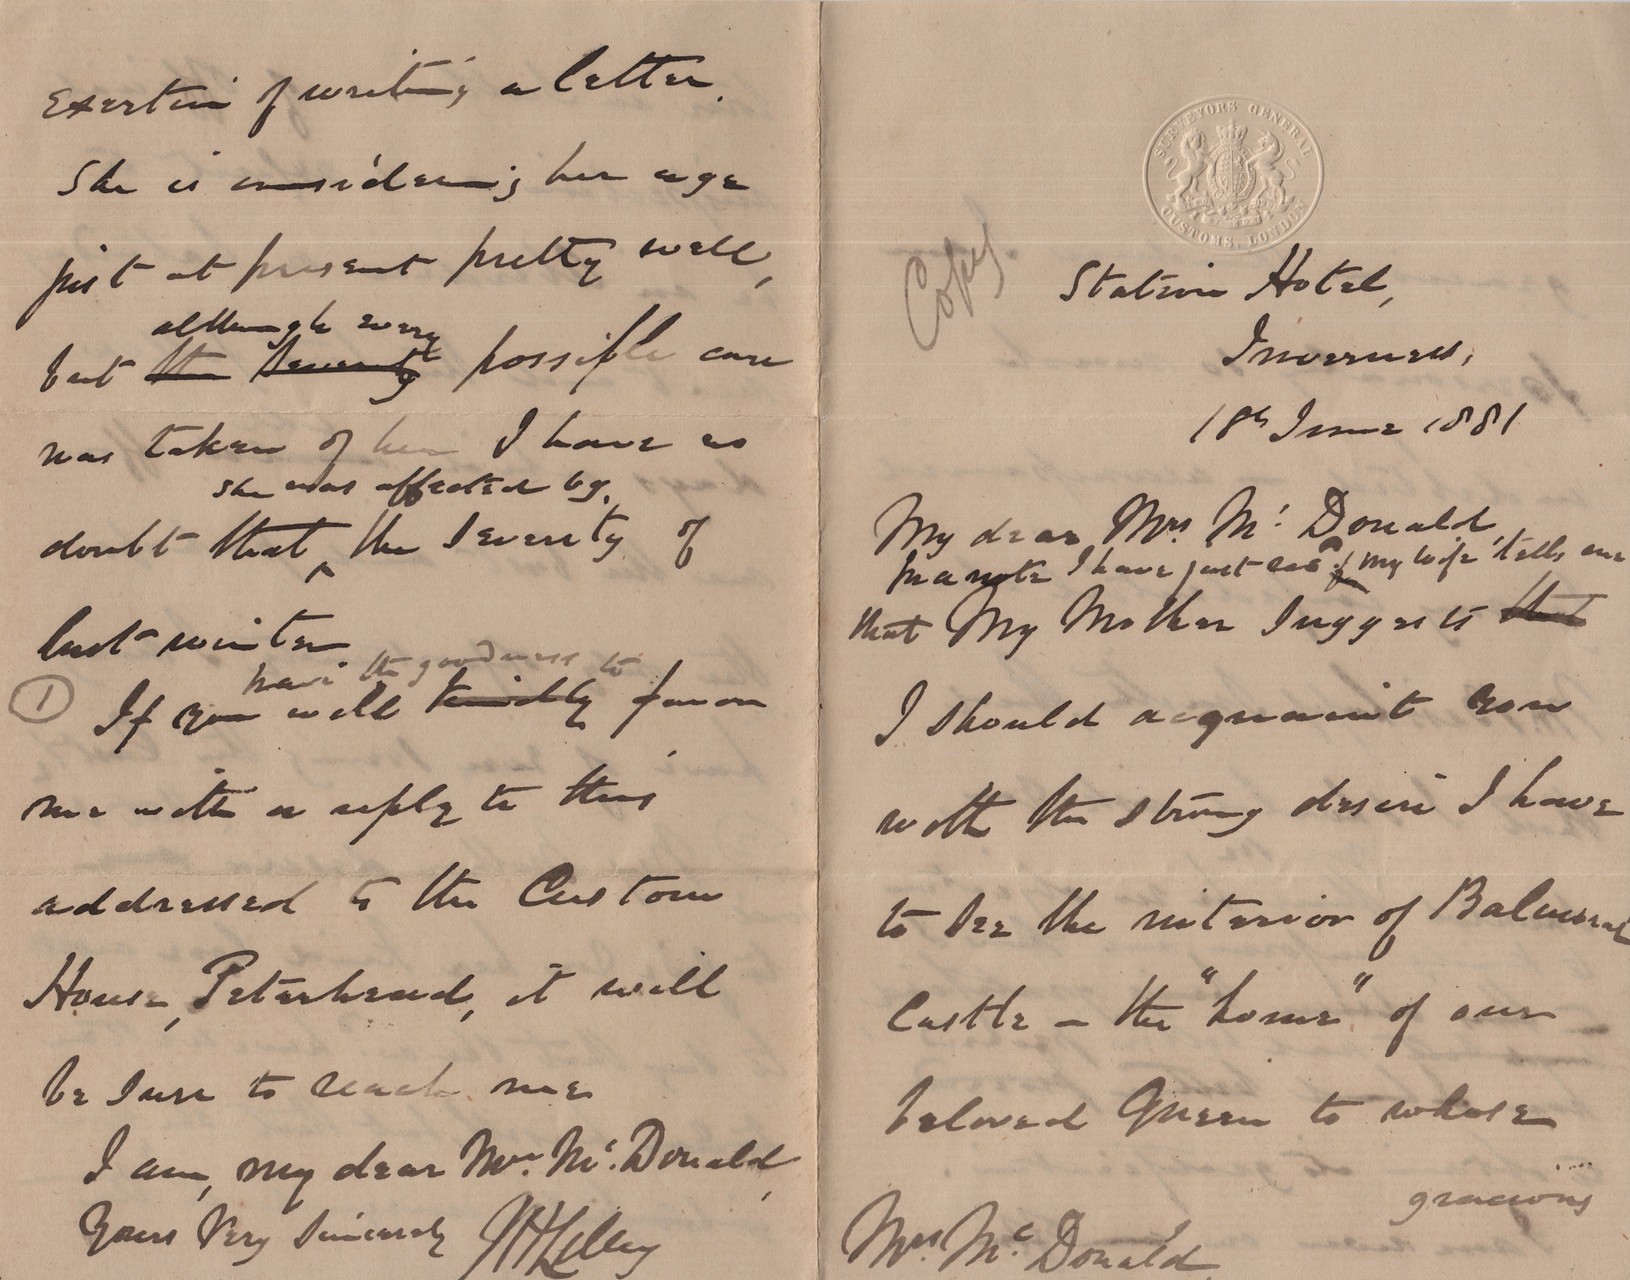 SURVEYORS GENERAL
CUSTOMS, LONDON
Copy.
Station Hotel,
Inverness,
18th June 1881
My dear Mrs Mc Donald,
In a note I have just rec^d of my wife tells me
that My Mother suggests that
I should acquaint you
with the strong desire I have
to see the interior of Balmoral
Castle – the "home" of our
beloved Queen to whose
gracious
Mrs Mc Donald
exertion of writing a letter.
She is considering her age
just at present pretty well,
although every
but the severity possible care
was taken of her I have no
she was affected by
doubt that ^ the severity of
last winter
have the goodness to
① If you will kindly favor
me with a reply to this
addressed to the Custom
House, Peterhead, it will
be sure to reach me
I am, my dear Mrs. Mc. Donald,
Yours Very Sincerely